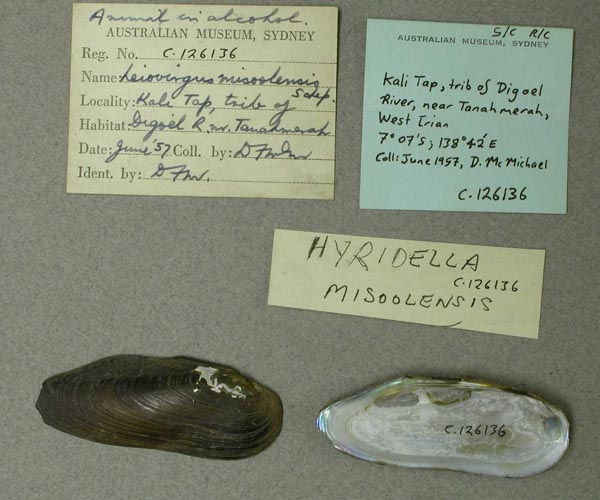 Animal in alcohol.
AUSTRALIAN MUSEUM, SYDNEY
Reg. No. C.126136
Name: Leiovirgus misoolensis
Schep.
Locality: Kali Tap, trib of
Habitat: Digoël R. nr. Tanahmerah
Date: June '57 Coll. by: DFMcM
Ident. by: DFM.
S/C R/C
AUSTRALIAN MUSEUM, SYDNEY
Kali Tap, trib of Digoel
River, near Tanahmerah,
West Irian
7°07's; 138°42'E
Coll: June 1957, D. McMichael
C.126136
HYRIDELLA
C.126136
MISOOLENSIS
C.126136